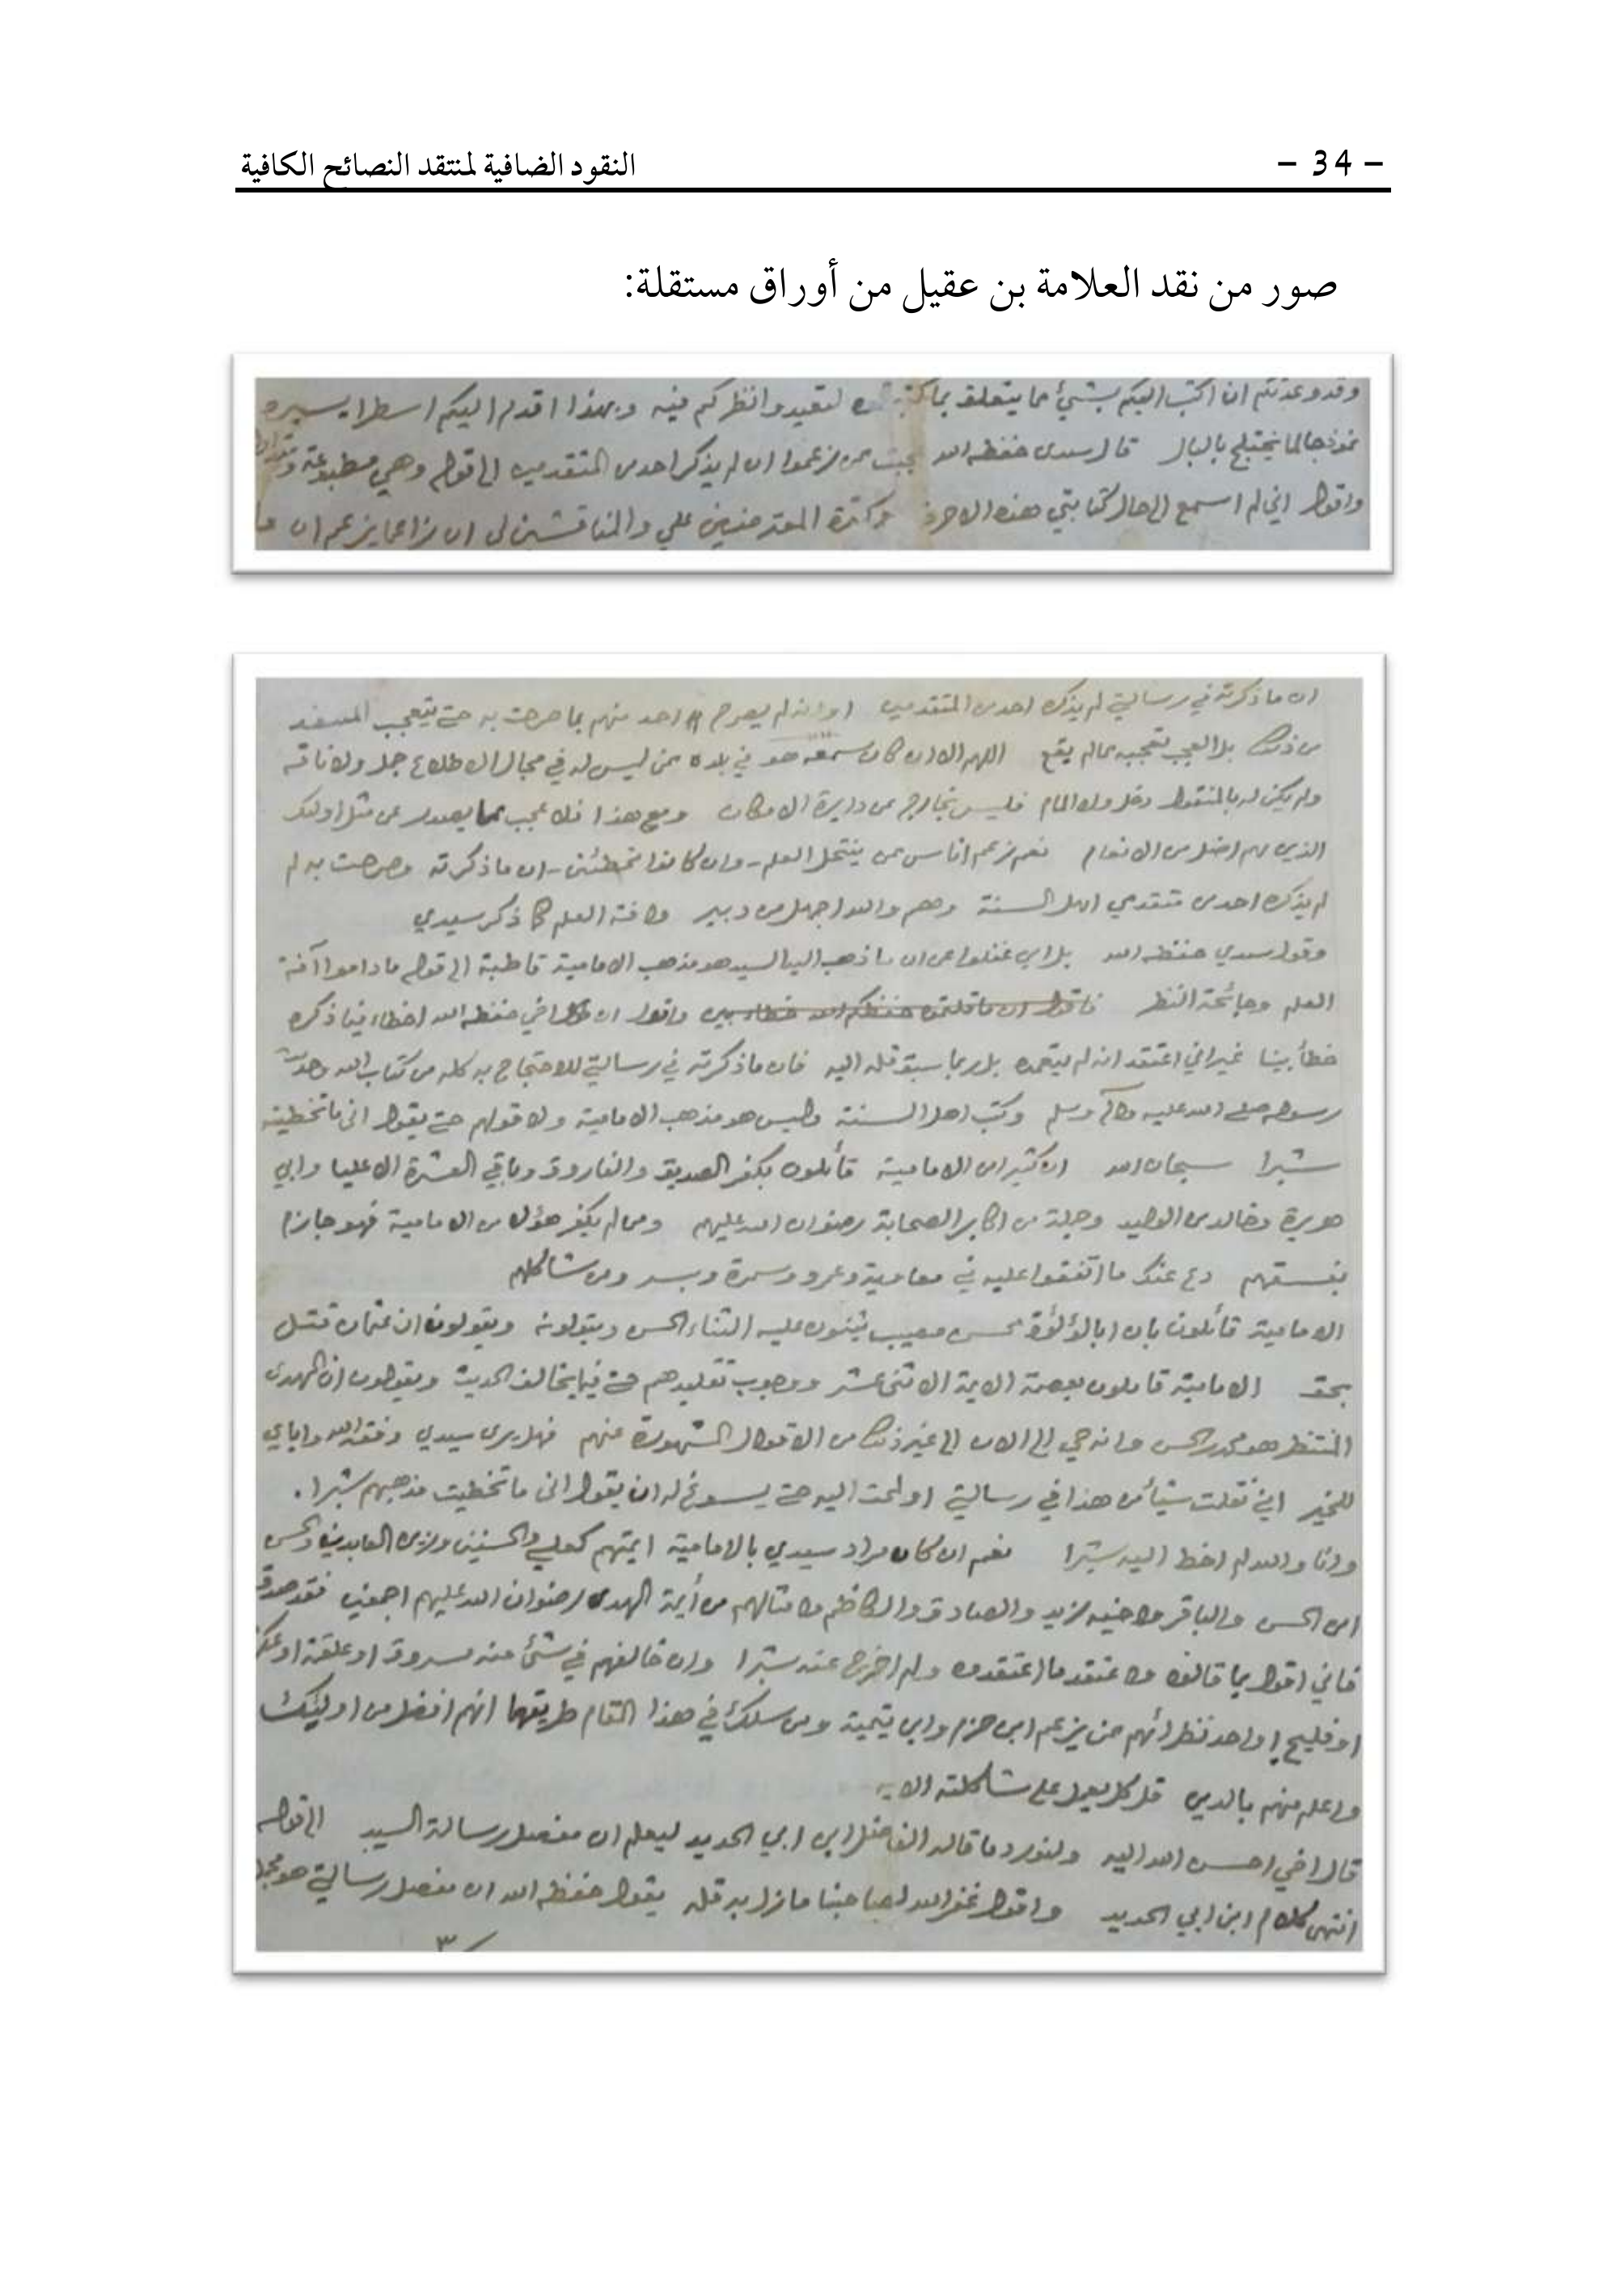 – 34 –
النقود الضافية لمنتقد النصائح الكافية
صور من نقد العلامة بن عقيل من أوراق مستقلة:
وقد وعدتكم ان اكتب اليكم بشيء مما يتعلق بما لتعيدوا نظركم فيه وبهذا اقدم اليكم اسطرا يسيره
نموذجا لما يختلج بالبال قال سيدي حفظه الله عجبت ممن زعموا ان لم يذكر احد من المتقدمين الى قوله وهي مطبوعة
واقول اني لم اسمع الى حال كتابتي هذه الاحرف وكثرة المعترضين علي والمناقشين لي ان زاعما يزعم ان ما
ان ما ذكرته في رسالتي لم يذكره احد من المتقدمين او انه لم يصرح احد منهم بما صرحت به حتى يتعجب المنتقد
من ذلك بل العجب تعجبه مما لم يقع اللهم الا ان كان سمعه هو في بلده ممن ليس له في مجال الاطلاع جمل ولا ناقة
ولم يكن له بالمنقول دخل ولا المام فليس بخارج عن دايرة الامكان ومع هذا فلا عجب مما يصدر عن مثل اولئك
الذين هم اضل من الانعام نعم زعم اناس ممن ينتحل العلم - وان كانوا مخطئين - ان ما ذكرته وصرحت به لم
لم يذكره احد من متقدمي اهل السنة وهم والله اجهل من دبير وآفة العلم كما ذكر سيدي
وقول سيدي حفظه الله بل اين غفلوا عن ان ما ذهب اليه السيد هو مذهب الامامية قاطبة الى قوله ما داموا آفة
العلم وجائحة النظر فاقول ان ما قلتموه حفظكم الله خطاء بين واقول ان اخي حفظه الله اخطاء فيما ذكره
خطأ بينا غير اني اعتقد انه لم يتعمده بل ربما سبق قلمه اليه فان ما ذكرته في رسالتي للاحتجاج به كله من كتاب الله وحديث
رسوله صلى الله عليه وآله وسلم وكتب اهل السنة وليس هو مذهب الامامية ولا قولهم حتى يقول اني ما تخطيته
شبرا سبحان الله ان كثيرا من الامامية قائلون بكفر الصديق والفاروق وباقي العشرة الا عليا وابي
هريرة وخالد بن الوليد وجلة من اكابر الصحابة رضوان الله عليهم ومن لم يكفر هؤلاء من الامامية فهو جازم
بفسقهم دع عنك ما اتفقوا عليه في معاوية وعمرو وسمرة وبسر ومن شاكلهم
الامامية قائلون بان ابا لؤلؤة محسن مصيب يثنون عليه الثناء الحسن ويتولونه ويقولون ان عثمان قتل
بحق الامامية قايلون بعصمة الايمة الاثني عشر ووجوب تقليدهم حتى فيما يخالف الحديث ويقولون ان المهدي
المنتظر هو محمد بن الحسن وانه حي الى الان الى غير ذلك من الاقوال المشهورة عنهم فهل يرى سيدي وفقه الله واياي
للخير اني نقلت شيأ من هذا في رسالتي او لمحت اليه حتى يسوغ له ان يقول اني ما تخطيت مذهبهم شبرا.
وانا والله لم اخط اليه شبرا نعم ان كان مراد سيدي بالامامية ايمتهم كعلي والحسنين وزين العابدين والحسن
ابن الحسن والباقر واخيه زيد والصادق والكاظم وامثالهم من أيمة الهدى رضوان الله عليهم اجمعين فقد صدق
فاني اقول بما قالوه واعتقد ما اعتقدوه ولم اخرج عنه شبرا وان خالفهم في شئ منه مسروق او علقمة او عكرمة
او فليح او احد نظرائهم ممن يزعم ابن حزم وابن تيمية ومن سلك في هذا المقام طريقهما انهم افضل من اوليئك
واعلم منهم بالدين قل كل يعمل على شاكلته الاية
قال اخي احسن الله اليه ولنورد ما قاله الفاضل ابن ابي الحديد ليعلم ان مفصل رسالة السيد الى قوله
انتهى كلام ابن ابي الحديد واقول غفر الله لصاحبنا ما زل به قلمه يقول حفظه الله ان مفصل رسالتي هو مجمل
٣